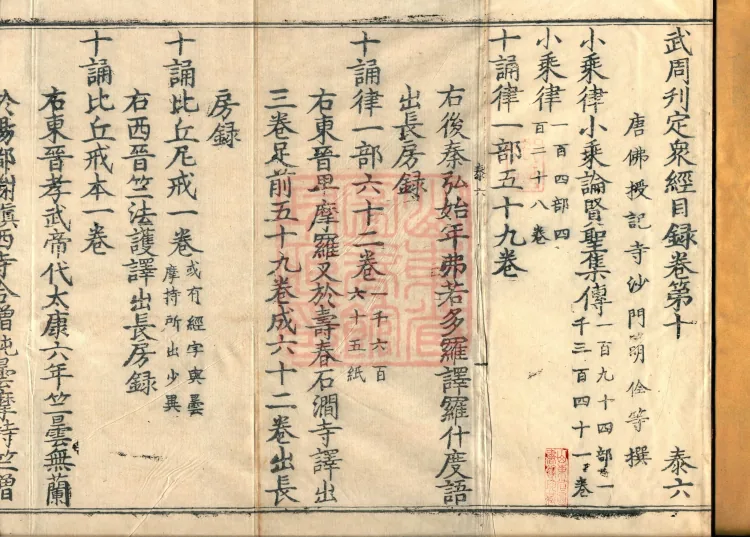 武周刊定衆經目録卷第十 泰六
唐佛授記寺沙門明佺等撰
小乘律小乘論賢聖集傳一百九十四部一千三百四十一卷
小乘律一百四部四百二十八卷
十誦律一部五十九卷
右後秦弘始年弗若多羅譯羅什度語
出長房録
十誦律一部六十二卷一千六百六十五紙
右東晉卑摩羅叉於壽春石澗寺譯出
三卷足前五十九卷成六十二卷出長
房録
十誦比丘尼戒一卷或有經字與曇摩持所出少異
右西晉竺法護譯出長房録
十誦比丘戒本一卷
右東晉孝武帝代太康六年竺曇無蘭
於揚都謝鎮西寺合僧純曇摩持竺僧
泰六